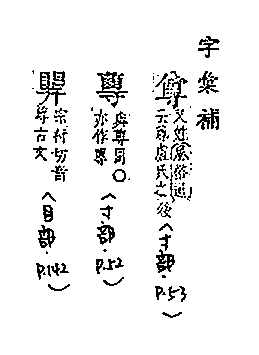 字彙補
又姓風俗通
云尊盧氏之後〈寸部·P.53〉
與尊同〇
亦作
〈寸部·P.52〉
宗村切音
尊古文
〈目部·P.142〉